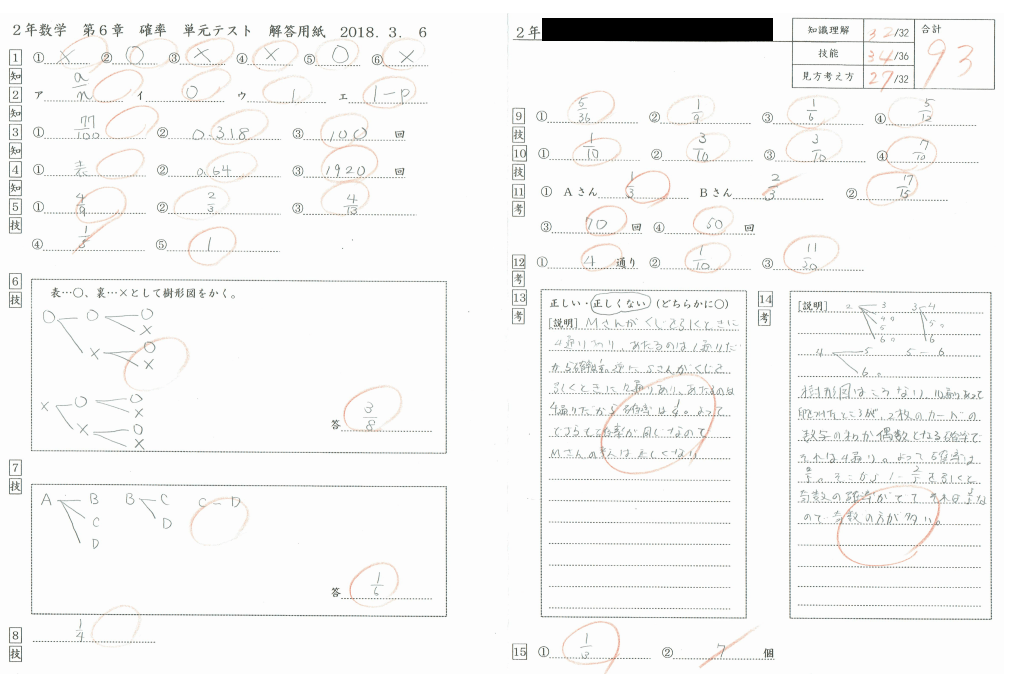 2年数学 第6章 確率 単元テスト 解答用紙 2018.3.6
1 ① × ② ○ ③ × ④ × ⑤ ○ ⑥ ×
知
2 ア a/n イ 0 ウ 1 エ 1-p
知
3 ① 77/100 ② 0.318 ③ 100 回
知
4 ① 表 ② 0.64 ③ 1920 回
知
5 ① 4/9 ② 2/3 ③ 4/13
技
④ 1/5 ⑤ 1
6 表…○、裏…×として樹形図をかく。
技
○ ○ ○
×
× ○
×
× ○ ○
×
× ○
×
答 3/8
7
技
A B B C C D
C D
D
答 1/6
8 1/4
技
2年
知識理解 32/32 合計
技能 34/36 93
見方考え方 27/32
9 ① 5/36 ② 1/9 ③ 1/6 ④ 5/12
技
10 ① 1/10 ② 3/10 ③ 3/10 ④ 7/10
技
11 ① Aさん 1/3 Bさん 2/3 ② 17/15
考
③ 70 回 ④ 50 回
12 ① 4 通り ② 1/10 ③ 11/30
考
13 正しい・正しくない (どちらかに○)
考
[説明] Mさんがくじを引くときに
4通りあり、あたるのは1通りだ
から確率は 逆にSさんがくじを
引くときに 通りあり、あたるのは
通りだから確率は1/4。よって
どちらも確率が同じなので
Mさんの は正しくない
14 [説明] 2 3 3 4
考
4 5
5
6 6
4 5 5 6
6
樹形図はこうなり、10通りあって
ところが、2枚のカードの
数字の和が偶数となる確率で
それは4通り。よって確率は
2/5。 1-2/5を引くと
奇数の確率がでて それは3/5な
ので奇数の方が多い。
15 ① 1/3 ② 7 個